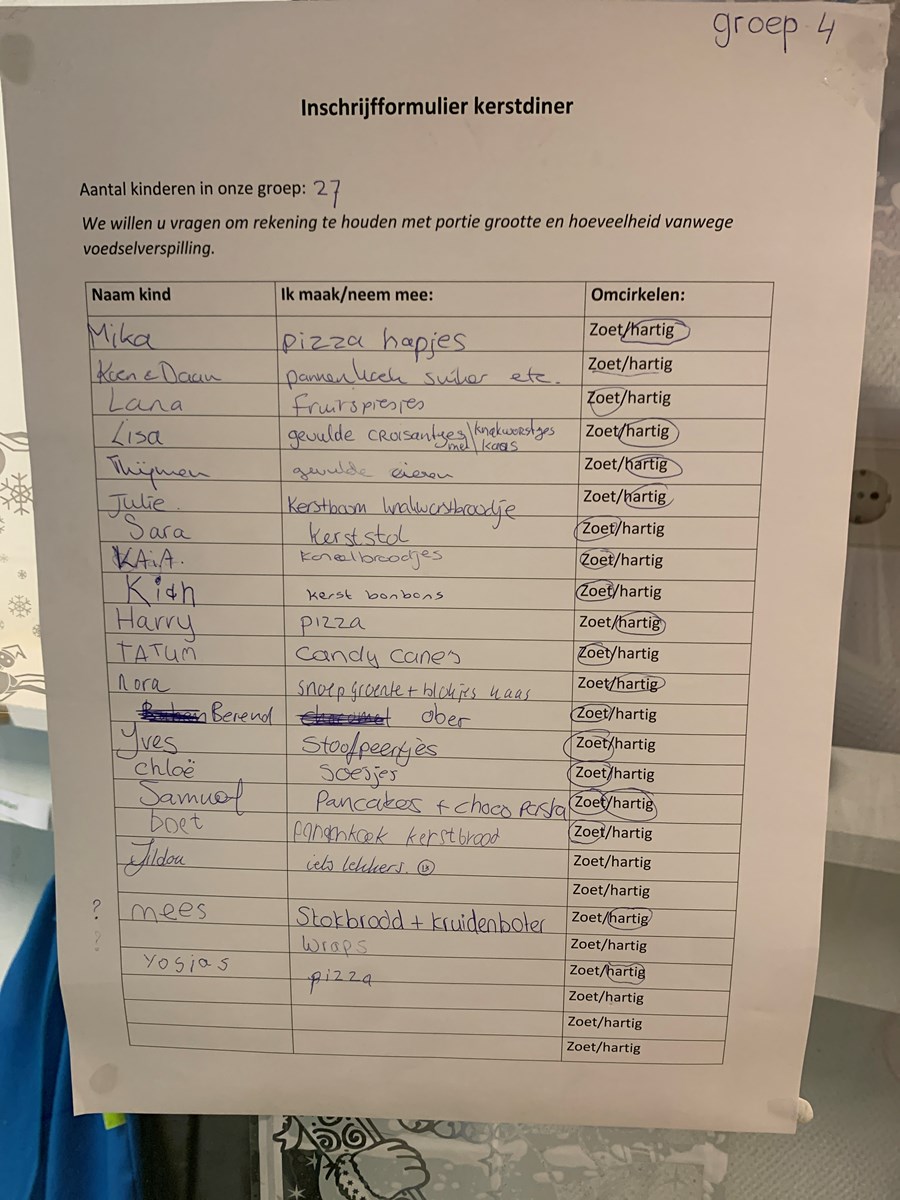 groep 4
Inschrijfformulier kerstdiner
Aantal kinderen in onze groep: 27
We willen u vragen om rekening te houden met portie grootte en hoeveelheid vanwege
voedselverspilling.
Naam kind Ik maak/neem mee: Omcirkelen:
Mika pizza hapjes Zoet/hartig
Koen & Daan pannenkoek suiker etc. Zoet/hartig
Lana fruitspiesjes Zoet/hartig
Lisa gevulde croisantjes met knakworstjes kaas Zoet/hartig
Thijmen gevulde eieren Zoet/hartig
Julie Kerstboom knakworstbroodje Zoet/hartig
Sara Kerststol Zoet/hartig
KAiA. Kaneelbroodjes Zoet/hartig
kerst bonbons Zoet/hartig
Harry pizza Zoet/hartig
TATUM Candy canes Zoet/hartig
Nora snoepgroente + blokjes kaas Zoet/hartig
Berend ober Zoet/hartig
Yves Stoofpeertjes Zoet/hartig
chloë Soesjes Zoet/hartig
Samuel Pancakes + choco pasta Zoet/hartig
boet kerstbrood Zoet/hartig
iets lekkers. Zoet/hartig
Zoet/hartig
? mees Stokbrood + kruidenboter Zoet/hartig
? wraps Zoet/hartig
Yosias pizza Zoet/hartig
Zoet/hartig
Zoet/hartig
Zoet/hartig